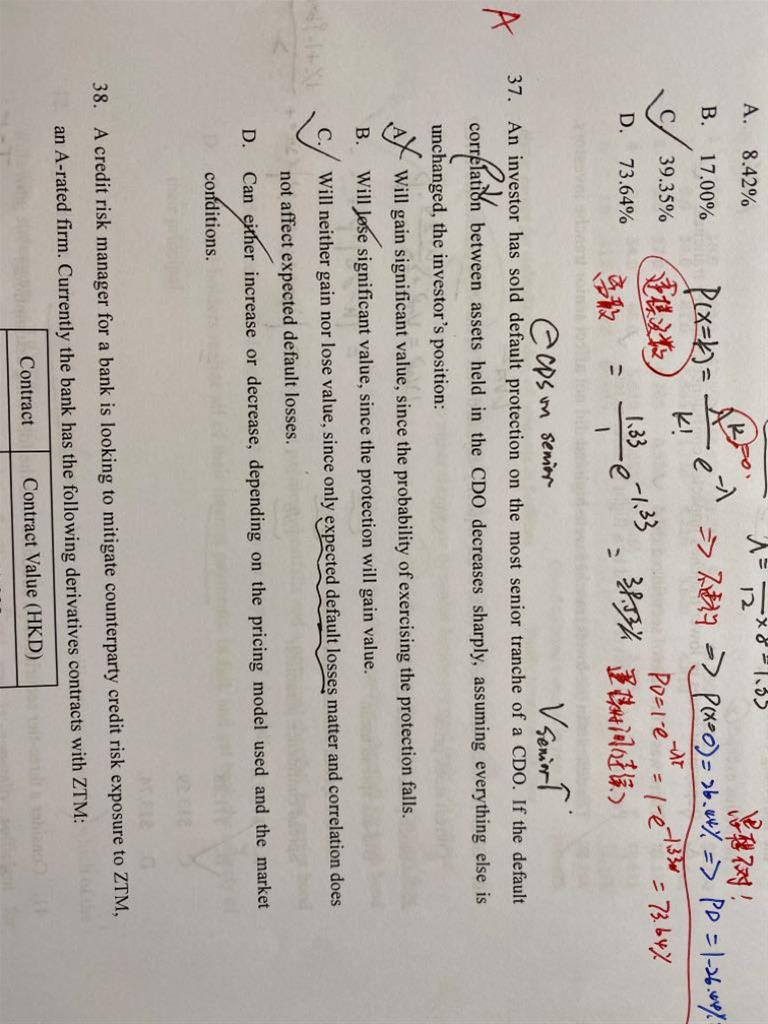 A. 8.42%
B. 17.00%
C. 39.35%
D. 73.64%
k=0.
λ = — × 8 = 1.33
12
P(x=k) = λ^k / k! e^-λ => 不违约 => P(x=0) = 26.44% => PD = 1-26.44%
= 1.33 / 1 e^-1.33 = 35.17%
PD = 1-e^-λt = 1-e^-1.33 = 73.64%
A
⊖ CDS on senior
V senior ↑
37. An investor has sold default protection on the most senior tranche of a CDO. If the default
correlation between assets held in the CDO decreases sharply, assuming everything else is
unchanged, the investor's position:
A. Will gain significant value, since the probability of exercising the protection falls.
B. Will lose significant value, since the protection will gain value.
C. Will neither gain nor lose value, since only expected default losses matter and correlation does
not affect expected default losses.
D. Can either increase or decrease, depending on the pricing model used and the market
conditions.
38. A credit risk manager for a bank is looking to mitigate counterparty credit risk exposure to ZTM,
an A-rated firm. Currently the bank has the following derivatives contracts with ZTM:
Contract Contract Value (HKD)